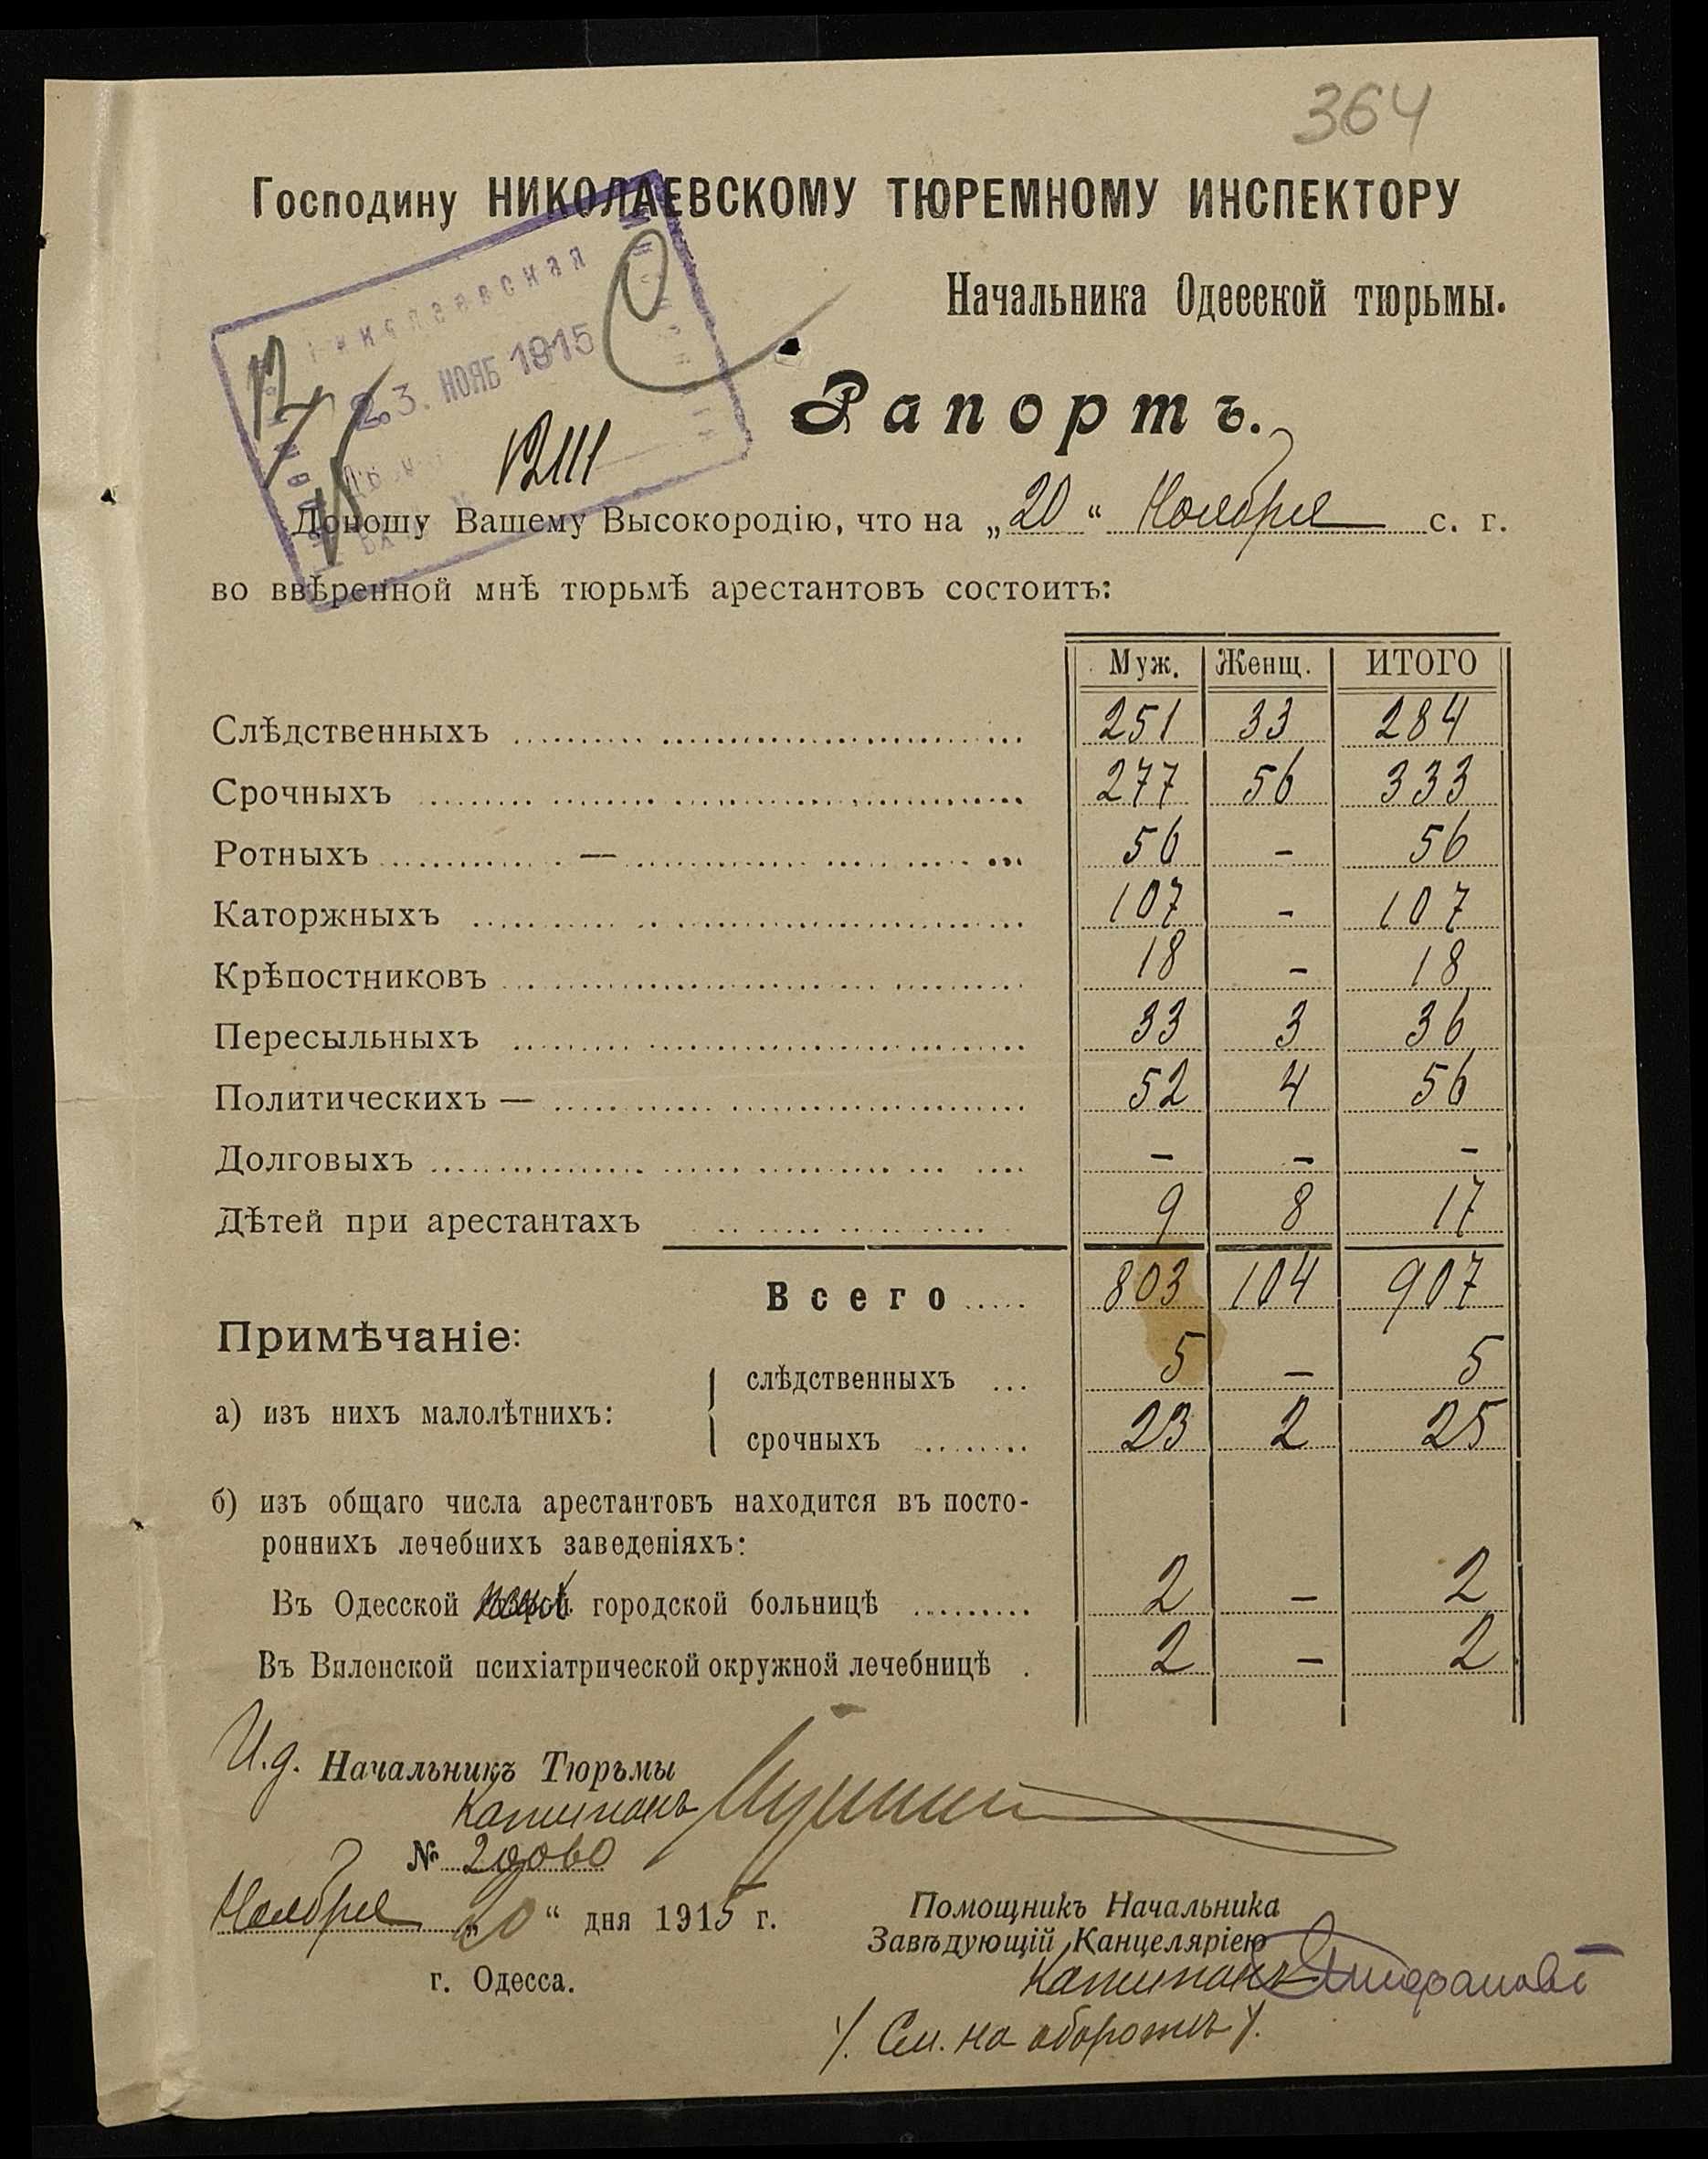 364
Господину НИКОЛАЕВСКОМУ ТЮРЕМНОМУ ИНСПЕКТОРУ
Начальника Одесской тюрьмы.
Николаевская
23. НОЯБ 1915
Рапортъ.
12111
Доношу Вашему Высокородію, что на „20“ Ноября с. г.
во ввѣренной мнѣ тюрьмѣ арестантовъ состоитъ:
Муж. Женщ. ИТОГО
Слѣдственныхъ 251 33 284
Срочныхъ 277 56 333
Ротныхъ — 56 - 56
Каторжныхъ 107 - 107
Крѣпостниковъ 18 - 18
Пересыльныхъ 33 3 36
Политическихъ — 52 4 56
Долговыхъ - - -
Дѣтей при арестантахъ 9 8 17
Всего 803 104 907
Примѣчаніе:
а) изъ нихъ малолѣтнихъ:
слѣдственныхъ 5 - 5
срочныхъ 23 2 25
б) изъ общаго числа арестантовъ находится въ посто-
роннихъ лечебнихъ заведеніяхъ:
Въ Одесской городской больницѣ 2 - 2
Въ Виленской психіатрической окружной лечебницѣ 2 - 2
И.д. Начальникъ Тюрьмы
Капитанъ
№ 20060
Ноября „20“ дня 1915 г.
г. Одесса.
Помощникъ Начальника
Завѣдующій Канцеляріею
Капитанъ
/. См. на оборотѣ /.